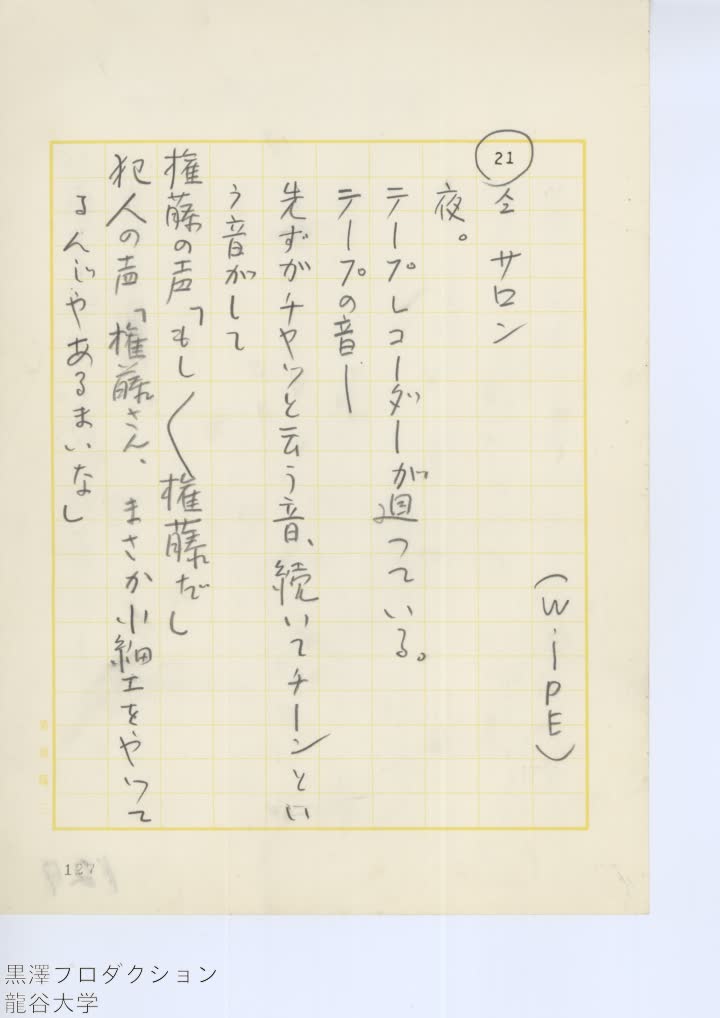 (WIPE)
21 仝 サロン
夜。
テープレコーダーが廻っている。
テープの音―
先ずガチャッと云う音、続いてチーンとい
う音がして
権藤の声「もし〱権藤だ」
犯人の声「権藤さん、まさか小細工をやって
るんじゃあるまいな」
127
黒澤プロダクション
龍谷大学